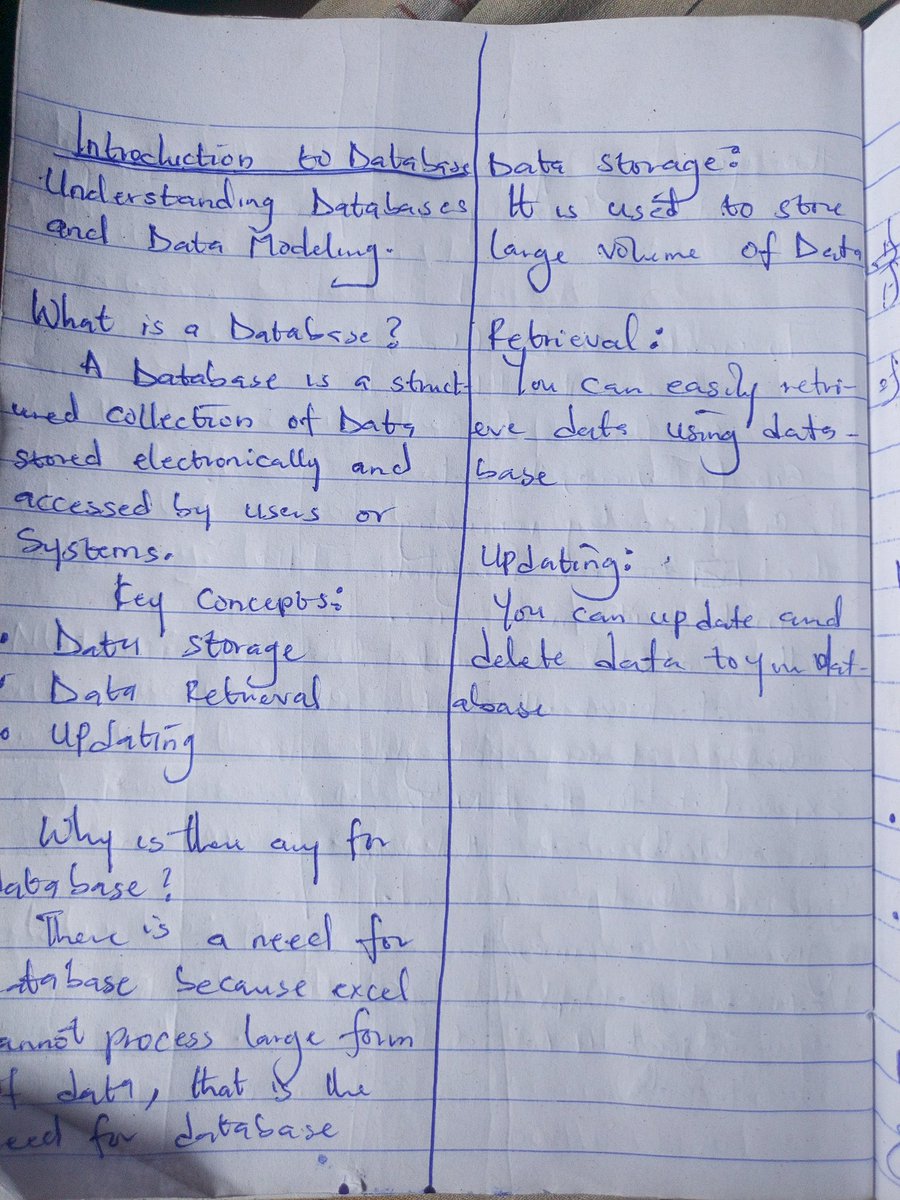 Introduction to Database
Understanding Databases
and Data Modeling.
What is a Database?
A Database is a struct-
ured collection of Data
stored electronically and
accessed by users or
Systems.
Key Concepts:
• Data storage
• Data Retrieval
• Updating
Why is there any for
database?
There is a need for
atabase because excel
annot process large form
of data, that is the
eed for database
Data storage:
It is used to store
large volume of Data
Retrieval:
You can easily retri-
eve data using data-
base
Updating:
You can update and
delete data to your dat-
abase